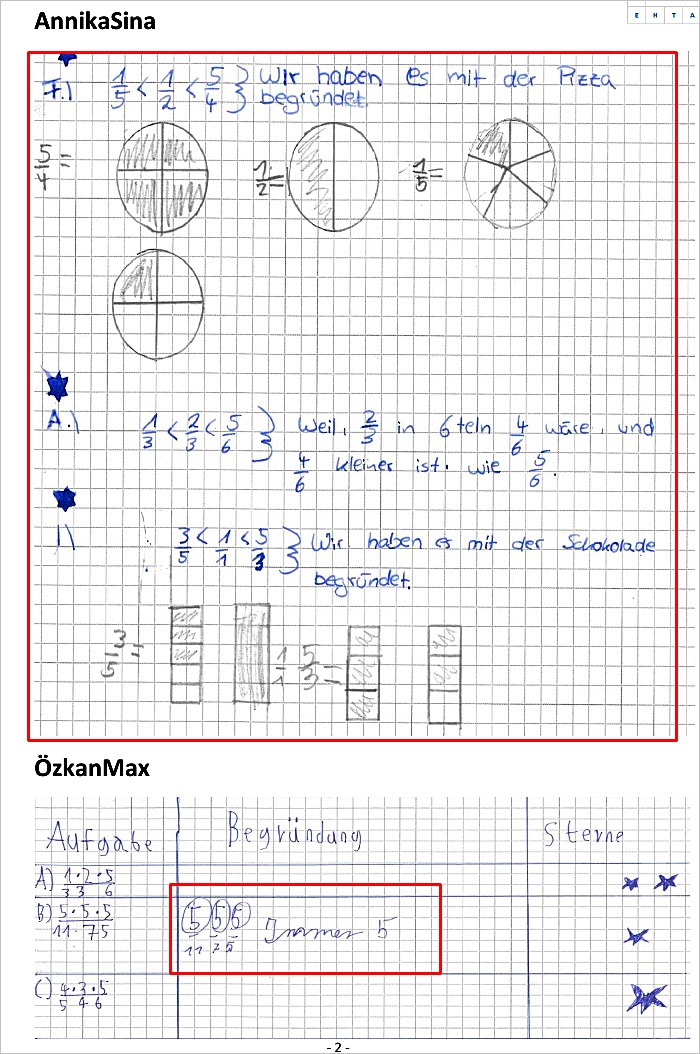 AnnikaSina
E H T A
F.) 1/5 < 1/2 < 5/4 } Wir haben es mit der Pizza
begründet.
5/4 = 1/2 = 1/5 =
A.) 1/3 < 2/3 < 5/6 } Weil, 2/3 in 6teln 4/6 wäre, und
4/6 kleiner ist. wie 5/6.
I) 3/5 < 1/1 < 5/3 } Wir haben es mit der Schokolade
begründet.
3/5 = 1/1 5/3 =
ÖzkanMax
Aufgabe Begründung Sterne
A) 1/3 · 2/3 · 5/6
B) 5/11 · 5/7 · 5/5 5/11 5/7 6/5 Immer 5
C) 4/5 · 3/4 · 5/6
- 2 -